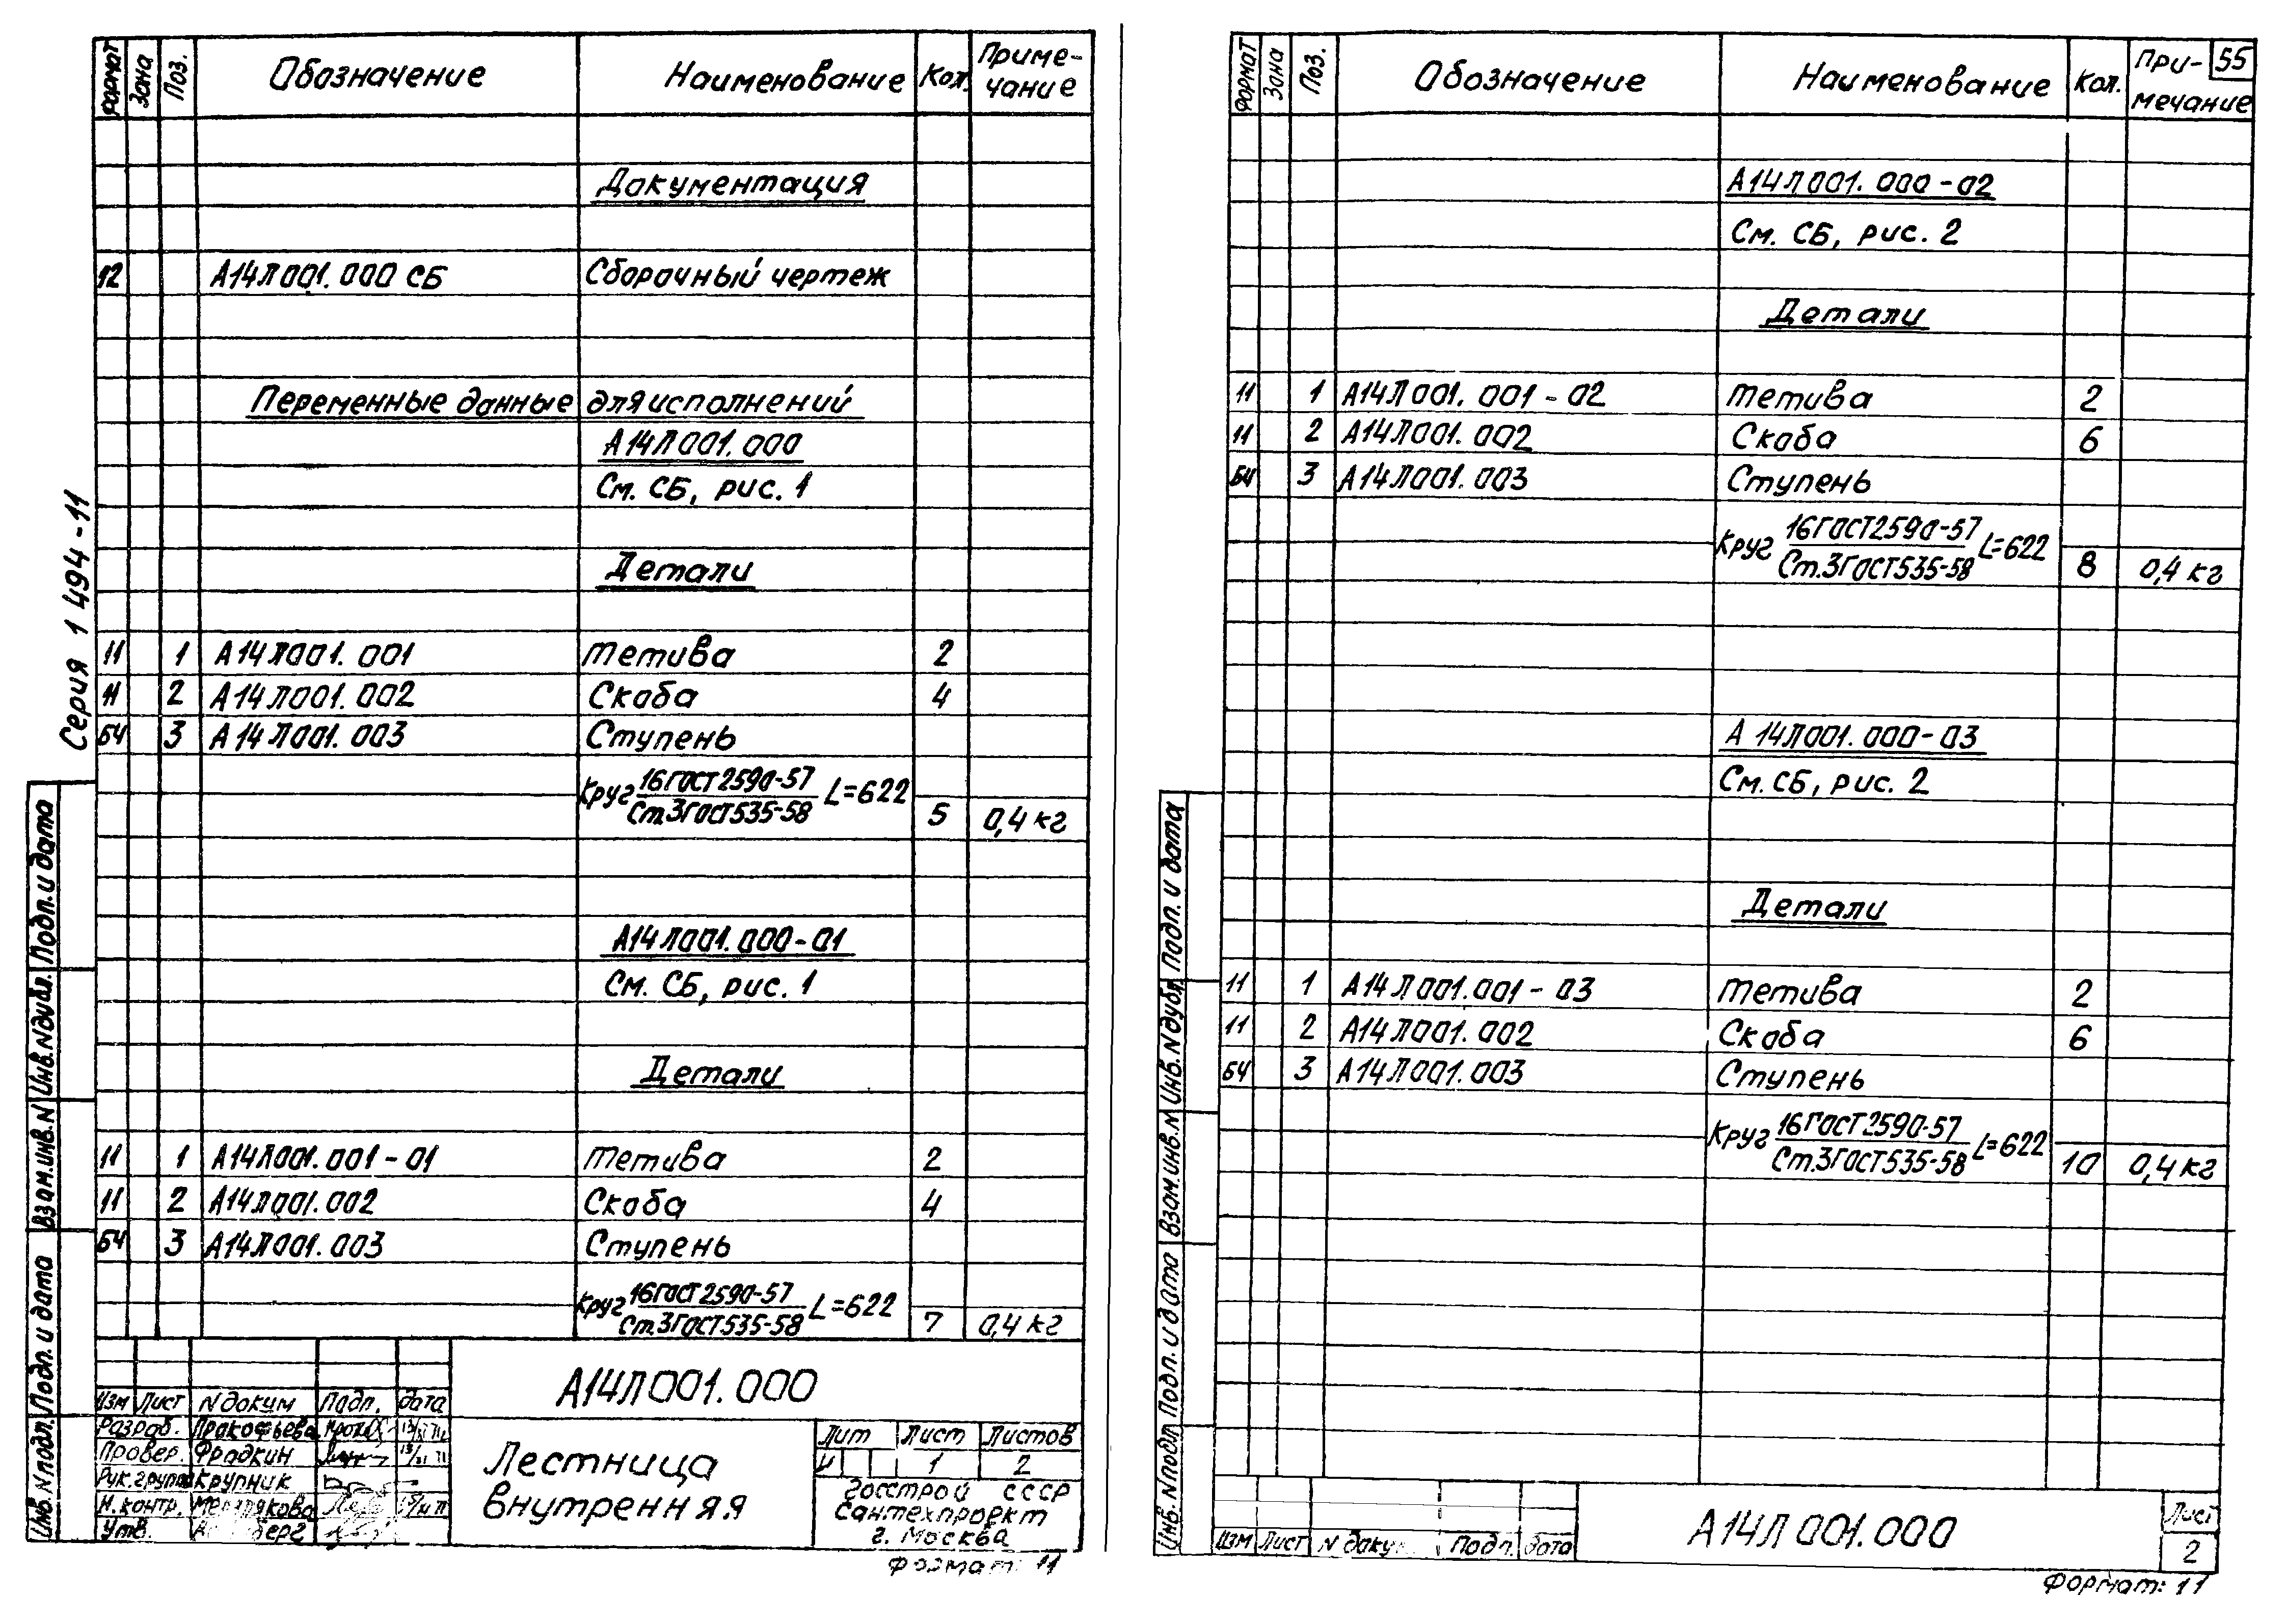 Формат Зона Поз. Обозначение Наименование Кол. Приме-
чание
Документация
12 А14Л001.000 СБ Сборочный чертеж
Переменные данные для исполнений
А14Л001.000
См. СБ, рис. 1
Детали
11 1 А14Л001.001 Тетива 2
11 2 А14Л001.002 Скоба 4
БЧ 3 А14Л001.003 Ступень
Круг 16ГОСТ2590-57 L=622
Ст.3ГОСТ535-58 5 0,4 кг
А14Л001.000-01
См. СБ, рис. 1
Детали
11 1 А14Л001.001-01 Тетива 2
11 2 А14Л001.002 Скоба 4
БЧ 3 А14Л001.003 Ступень
Круг 16ГОСТ2590-57 L=622
Ст.3ГОСТ535-58 7 0,4 кг
Серия 1 494-11
Подп. и дата
Инв.Nдубл.
Взам.инв.N
Подп. и дата
Инв.Nподл.
А14Л001.000
Изм Лист N докум Подп. Дата
Разраб. Прокофьева
Провер. Фрадкин
Рук.группы Крупник
Н.контр.
Утв.
Лестница
внутренняя
Лит Лист Листов
И 1 2
Госстрой СССР
Сантехпроект
г. Москва
Формат: 11
Формат Зона Поз. Обозначение Наименование Кол. При-
мечание
55
А14Л001.000-02
См. СБ, рис. 2
Детали
11 1 А14Л001.001-02 Тетива 2
11 2 А14Л001.002 Скоба 6
БЧ 3 А14Л001.003 Ступень
Круг 16ГОСТ2590-57 L=622
Ст.3ГОСТ535-58 8 0,4 кг
А14Л001.000-03
См. СБ, рис. 2
Детали
11 1 А14Л001.001-03 Тетива 2
11 2 А14Л001.002 Скоба 6
БЧ 3 А14Л001.003 Ступень
Круг 16ГОСТ2590-57 L=622
Ст.3ГОСТ535-58 10 0,4 кг
Подп. и дата
Инв.Nдубл
Взам.инв.N
Подп. и дата
Инв.Nподл
Изм Лист N доку Подп. Дата
А14Л001.000
Лист
2
Формат: 11